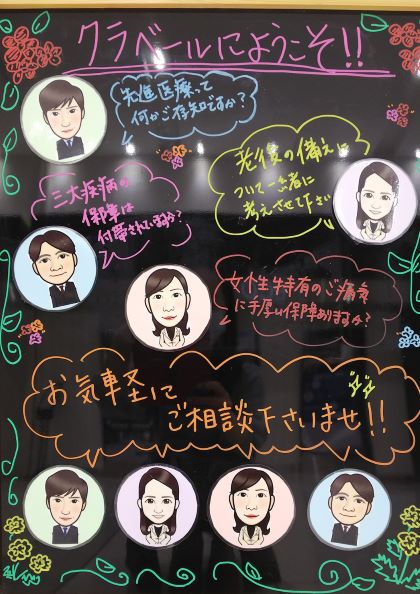 クラベールにようこそ!!
先進医療って
何かご存知ですか?
老後の備えに
ついて一緒に
考えさせて下さい
三大疾病の
保障は
付帯されていますか?
女性特有のご病気
に手厚い保障ありますか?
お気軽に
ご相談下さいませ!!